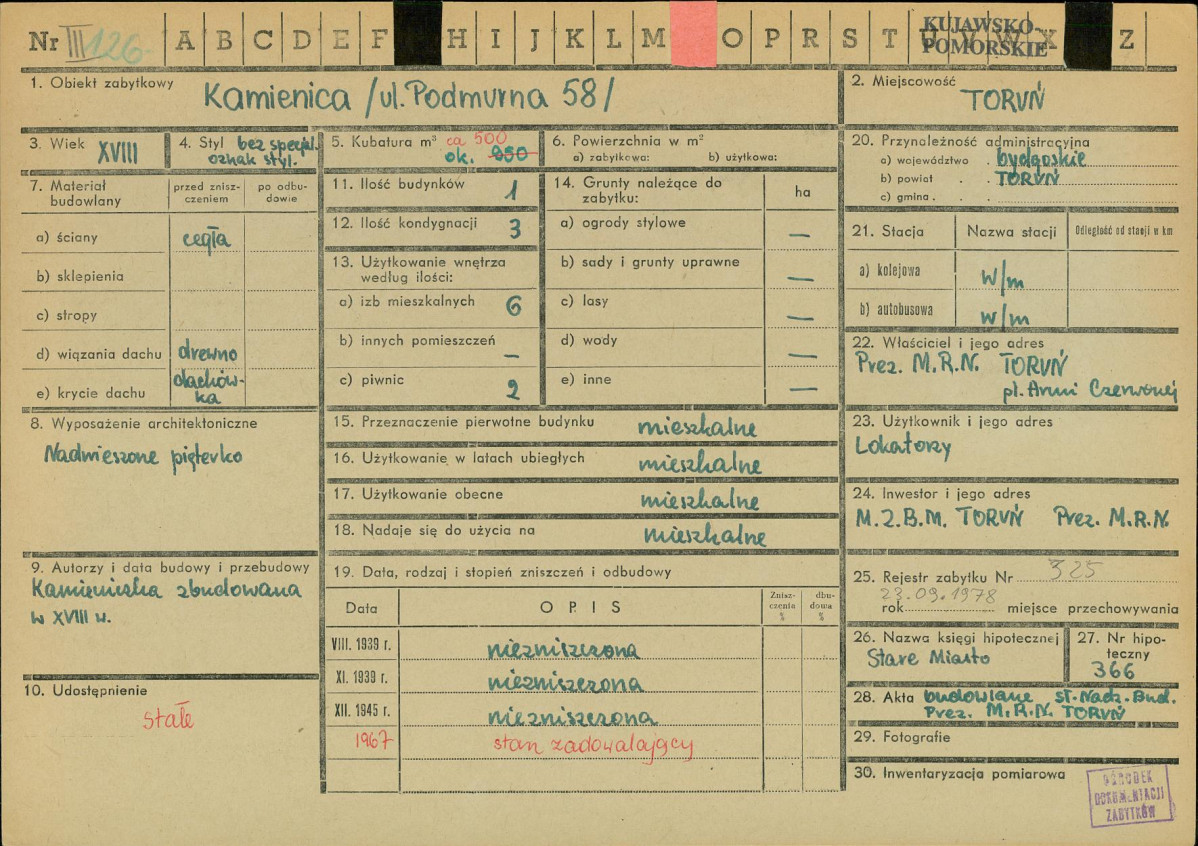 Nr III/126- A B C D E F H I J K L M O P R S T U W X Z
KUJAWSKO-
POMORSKIE
1. Obiekt zabytkowy Kamienica /ul. Podmurna 58/
2. Miejscowość
TORUŃ
3. Wiek XVIII
4. Styl bez specjal.
oznak styl.
5. Kubatura m³ ca 500
ok.
6. Powierzchnia w m²
a) zabytkowa: b) użytkowa:
7. Materiał budowlany
przed zniszczeniem
po odbudowie
a) ściany cegła
b) sklepienia
c) stropy
d) wiązania dachu drewno
e) krycie dachu dachów-
ka
8. Wyposażenie architektoniczne
Nadwieszone pięterko
9. Autorzy i data budowy i przebudowy
Kamieniczka zbudowana
w XVIII w.
10. Udostępnienie
stałe
11. Ilość budynków 1
12. Ilość kondygnacji 3
13. Użytkowanie wnętrza
według ilości:
a) izb mieszkalnych 6
b) innych pomieszczeń –
c) piwnic 2
14. Grunty należące do
zabytku:
ha
a) ogrody stylowe —
b) sady i grunty uprawne —
c) lasy —
d) wody —
e) inne —
15. Przeznaczenie pierwotne budynku mieszkalne
16. Użytkowanie w latach ubiegłych mieszkalne
17. Użytkowanie obecne mieszkalne
18. Nadaje się do użycia na mieszkalne
19. Data, rodzaj i stopień zniszczeń i odbudowy
Data OPIS
Znisz-
czenia
%
dbu-
dowa
%
VIII. 1939 r. niezniszczona
XI. 1939 r. niezniszczona
XII. 1945 r. niezniszczona
1967 stan zadowalający
20. Przynależność administracyjna
a) województwo . bydgoskie
b) powiat . . TORUŃ
c) gmina . . .
21. Stacja Nazwa stacji Odległość od stacji w km
a) kolejowa w/m
b) autobusowa w/m
22. Właściciel i jego adres
Prez. M.R.N. TORUŃ
pl. Armii Czerwonej
23. Użytkownik i jego adres
Lokatorzy
24. Inwestor i jego adres
M.Z.B.M. TORUŃ Prez. M.R.N.
25. Rejestr zabytku Nr 325
23.09.1978
rok miejsce przechowywania
26. Nazwa księgi hipotecznej
Stare Miasto
27. Nr hipo-
teczny
366
28. Akta budowlane st. Nadz. Bud.
Prez. M.R.N. TORUŃ
29. Fotografie
30. Inwentaryzacja pomiarowa
OŚRODEK
DOKUMENTACJI
ZABYTKÓW